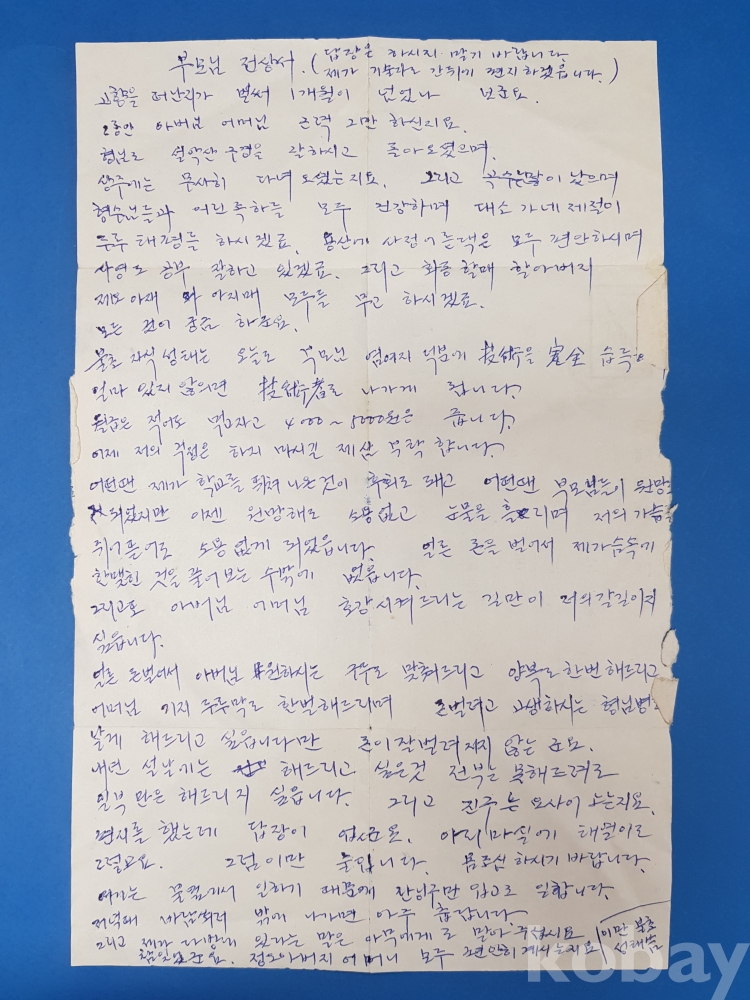 부모님 전상서. (답장은 하시지 말기 바랍니다.
제가 기술자로 간뒤에 편지하겠읍니다.)
고향을 떠난지가 벌써 1개월이 넘었나 보군요.
그동안 아버님 어머님 근력 그만 하신지요.
형님도 설악산 구경을 잘하시고 돌아오셨으며.
상주에는 무사히 다녀 오셨는지요. 그리고 이 났으며
형수님들과 어린 족하들 모두 건강하며 대소가네제절이
두루 태평들 하시겠죠. 용산에 사정어른댁은 모두 편안하시며
사영도 공부 잘하고 있겠죠. 그리고 할매 할아버지
아재 와 아지매 모두들 무고 하시겠죠.
모든 것이 궁금 하군요.
불효자식 성태는 오늘도 부모님 염여지 덕분에 技術을 完全 습득
얼마 있지 않으면 技術者로 나가게 됩니다.
월급은 적어도 먹고자고 4000~5000원은 줍니다.
이제 저의 걱정은 하지 마시길 제삼 부탁 합니다.
어떤땐 제가 학교를 나온것이 후회도 돼고 어떤땐 부모님들이 원망
되었지만 이젠 원망해도 소용없고 눈물을 흘리며 저의가슴을
쥐어뜯어도 소용없게 되었읍니다. 얼른 돈을 벌어서 제가슴속에
한맺힌 것을 풀어보는 수밖에 없읍니다.
그리고 아버님 어머님 호강시켜드리는 길만이 저의갈길이지
싶읍니다.
얼른 돈벌어서 아버님 원하시는 구두도 맞춰드리고 양복도한번해드리고
어머님 두루막도 한벌해드리며 돈벌려고 고생하시는 형님병도
낳게 해드리고 싶읍니다만 돈이잘벌려지지 않는군요.
내년 설날에는 해드리고 싶은것 전부는 못해드려도
일부만은 해드리지 싶읍니다. 그리고 진주는 요사이 노는지요.
편지를 했는데 답장이 없군요. 아지마실에 태열이도
그렇고요. 그럼이만 줄입니다. 몸조심하시기 바랍니다.
여기는 일하기 때문에 입고도 일합니다.
저녁때 밖에 나가면 아주 춥습니다.
그리고 제가 있다는 말은 아무에게도 말아 주십시요
아버지 어머니 모두 편안히 계시는지요
이만 불효
성태올림
kobay